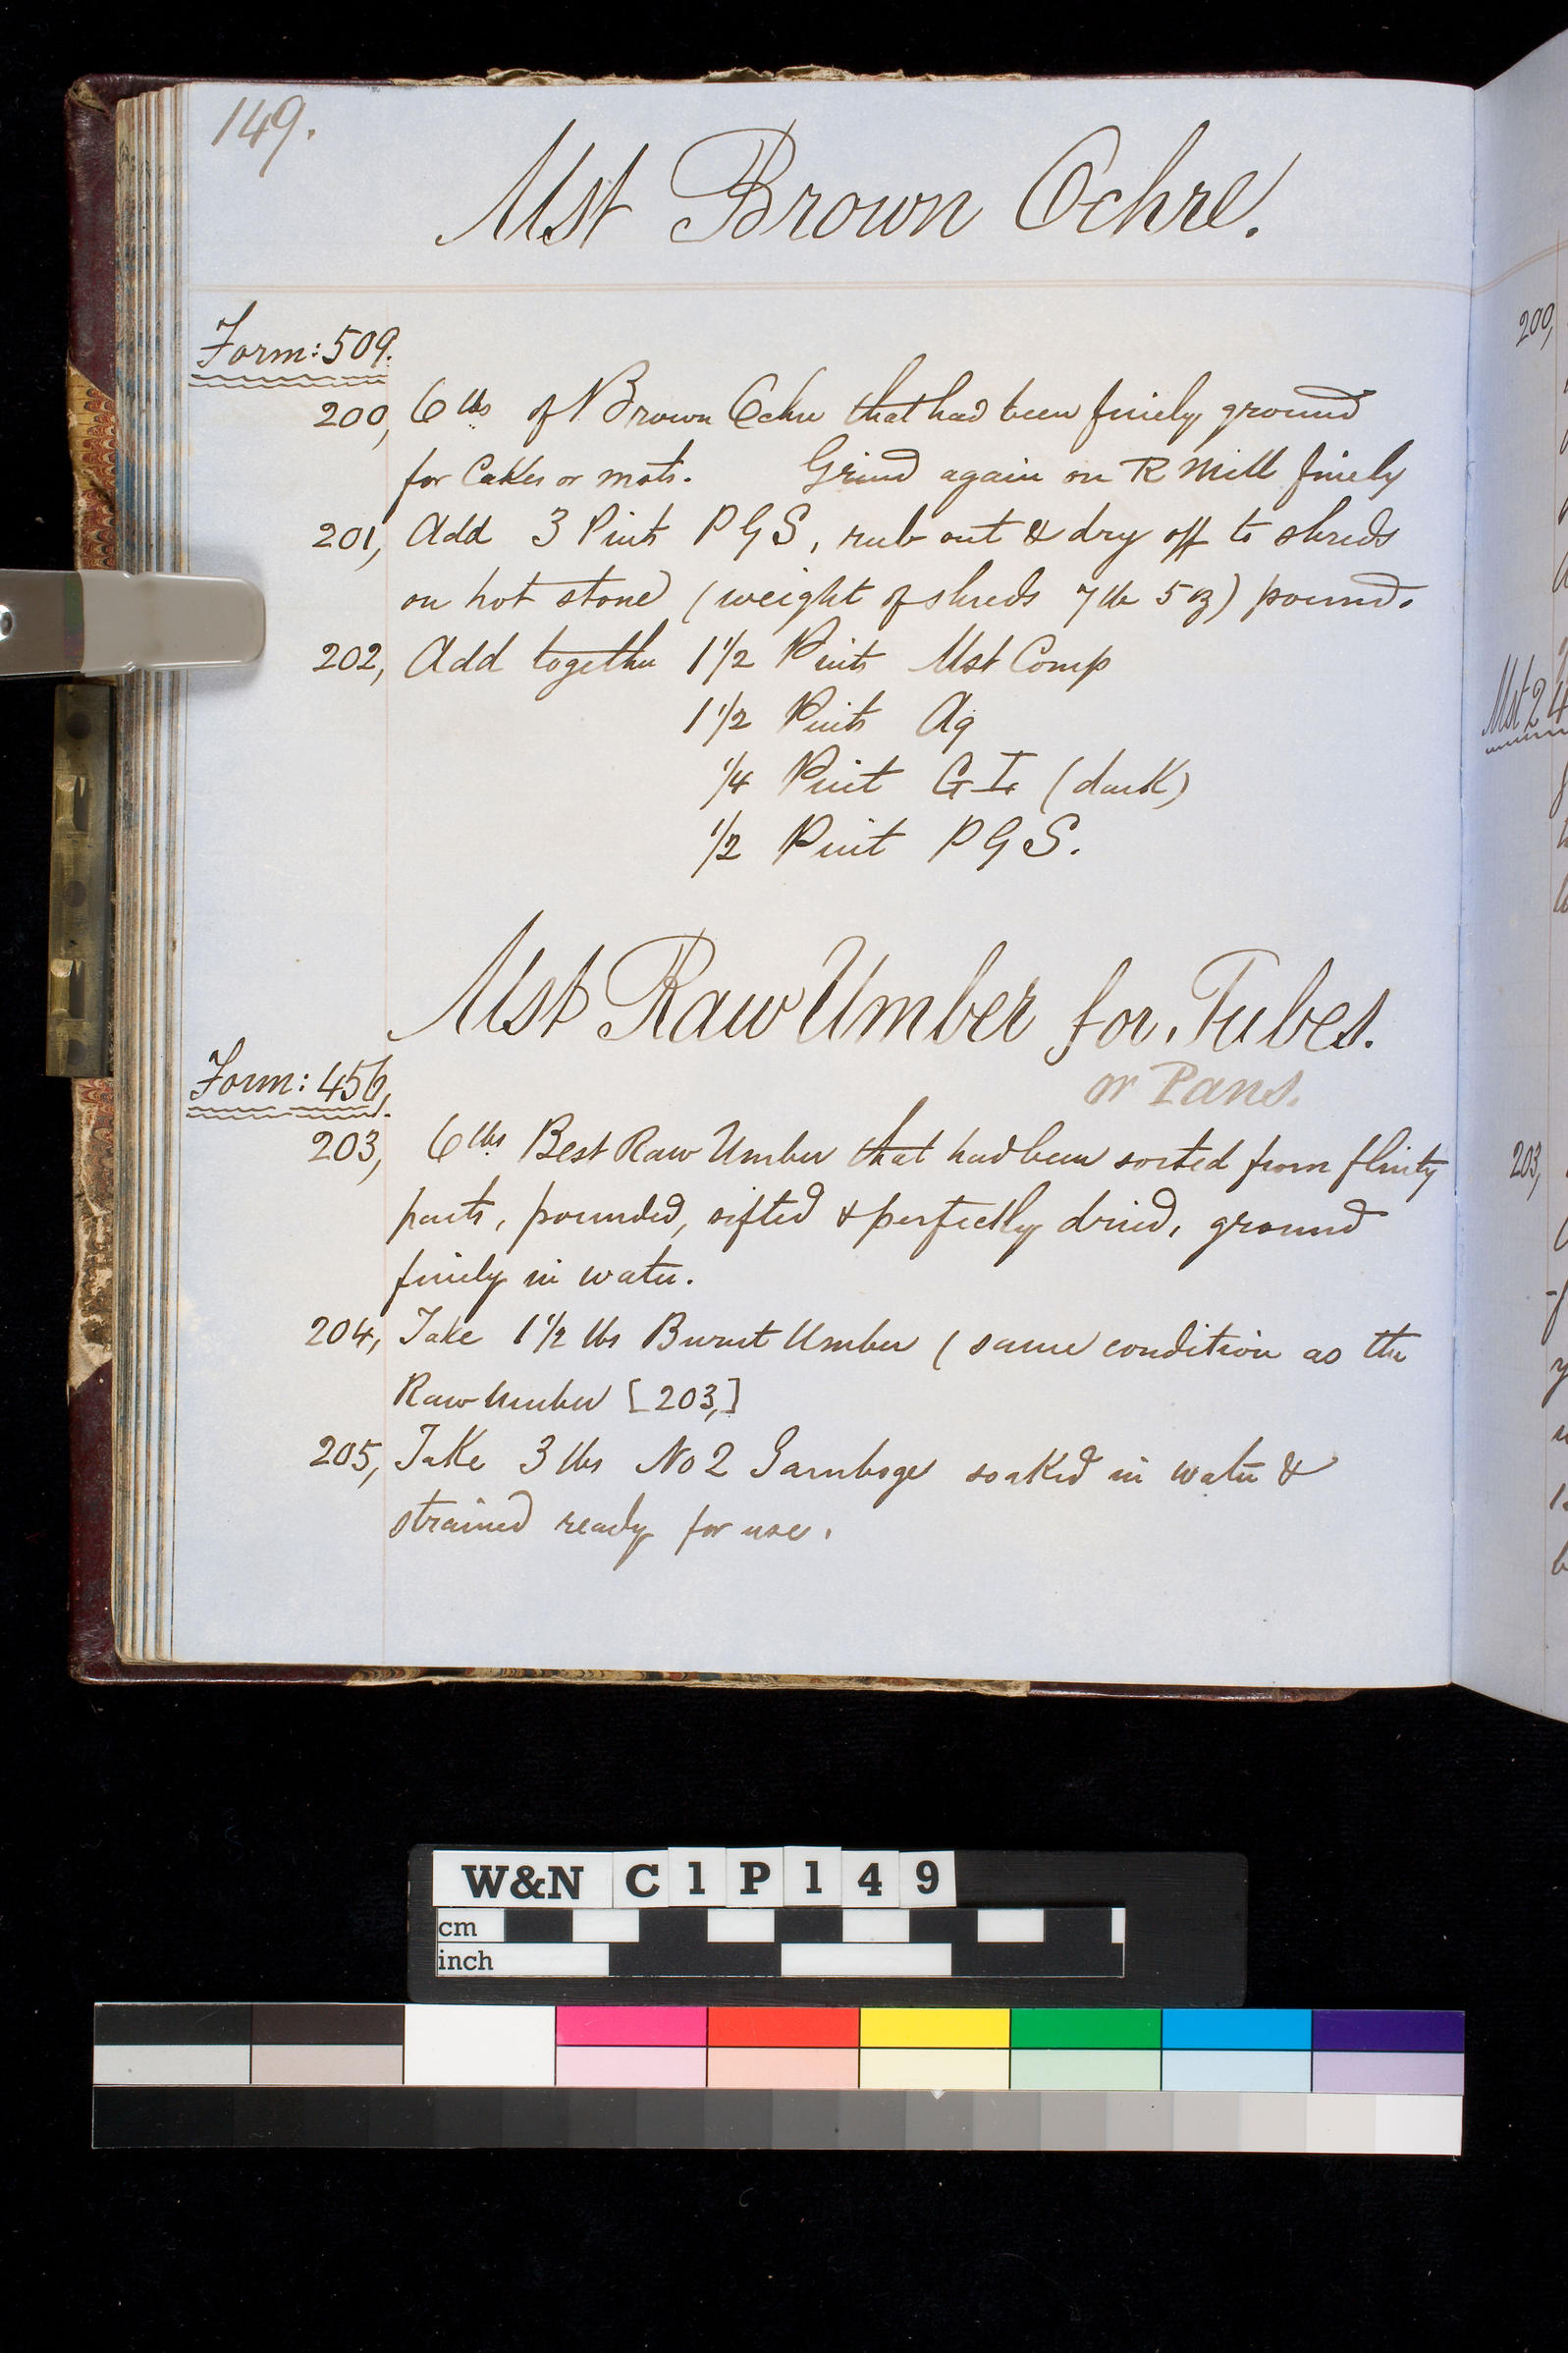 149.
Mst Brown Ochre.
Form: 509.
200, 6 lbs of Brown Ochre that had been finely ground
for Cakes or msts. Grind again on R Mill finely
201, Add 3 Pints P G S, rub out & dry off to shreds
on hot stone (weight of shreds 7 lb 5 oz) pound.
202, Add together 1 1/2 Pints Mst Comp
1 1/2 Pints Aq
1/4 Pint G I (dark)
1/2 Pint P G S.
Mst Raw Umber for Tubes.
or Pans.
Form: 456,
203, 6 lbs Best Raw Umber that had been sorted from flinty
parts, pounded, sifted & perfectly dried, ground
finely in water.
204, Take 1 1/2 lbs Burnt Umber (same condition as the
Raw Umber [203,]
205, Take 3 lbs No 2 Gamboge soaked in water &
strained ready for use.
200,
Mst 24
203,
W&N C1P149
cm
inch